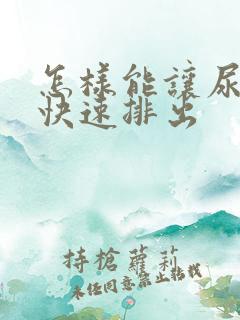 怎樣能讓尿
快速排出
持槍蘿莉
未经同意禁止转载